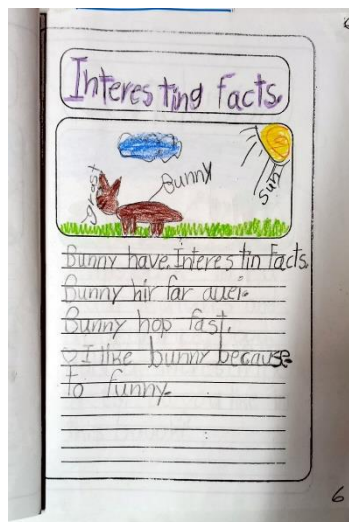 Interesting facts.
Bunny
Sun
grast
Bunny have Interestin Facts.
Bunny hir far auei.
Bunny hop fast.
I like bunny because
to funny.
6